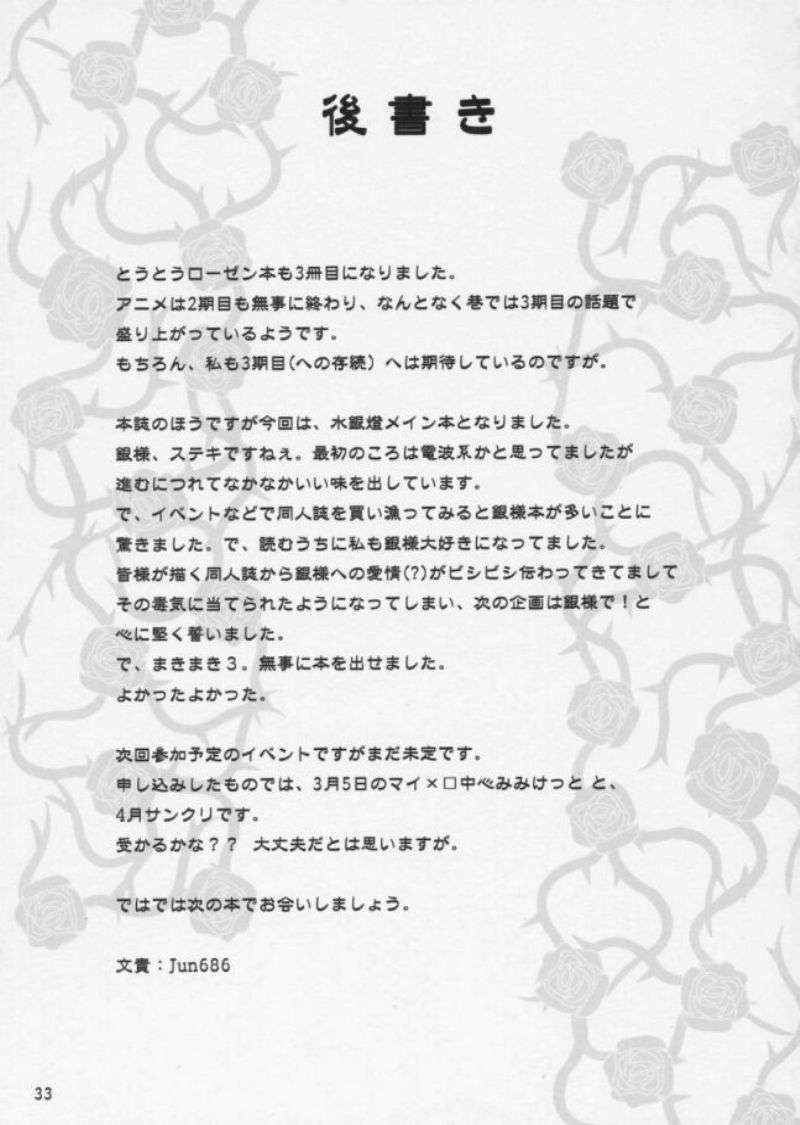 後書き
とうとうローゼン本も3冊目になりました。
アニメは2期目も無事に終わり、なんとなく巷では3期目の話題で
盛り上がっているようです。
もちろん、私も3期目(への存続）へは期待しているのですが。
本誌のほうですが今回は、水銀燈メイン本となりました。
銀様、ステキですねぇ。最初のころは電波系かと思ってましたが
進むにつれてなかなかいい味を出しています。
で、イベントなどで同人誌を買い漁ってみると銀様本が多いことに
驚きました。で、読むうちに私も銀様大好きになってました。
皆様が描く同人誌から銀様への愛情(?)がビシビシ伝わってきてまして
その毒気に当てられたようになってしまい、次の企画は銀様で！と
心に堅く誓いました。
で、まきまき３。無事に本を出せました。
よかったよかった。
次回参加予定のイベントですがまだ未定です。
申し込みしたものでは、3月5日のマイ×ロ中心みみけっと と、
4月サンクリです。
受かるかな？？ 大丈夫だとは思いますが。
ではでは次の本でお会いしましょう。
文貴：Jun686
33